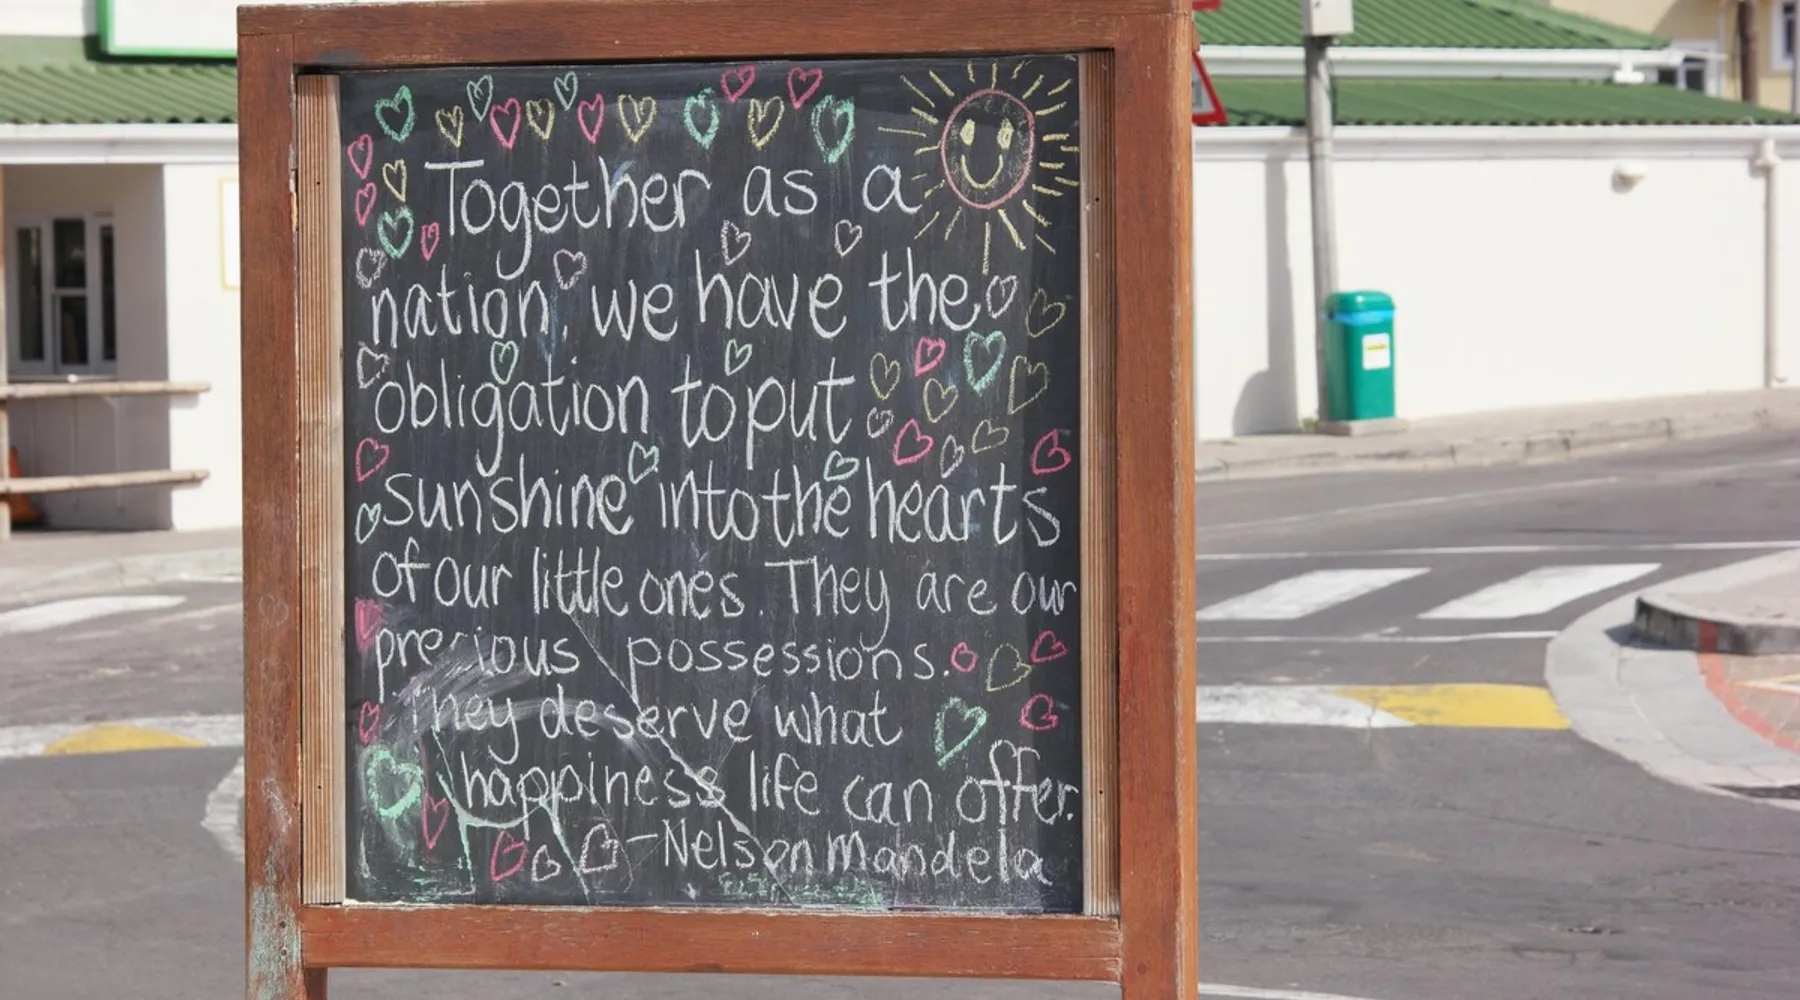 Together as a
nation, we have the
obligation to put
sunshine into the hearts
of our little ones. They are our
precious possessions.
They deserve what
happiness life can offer.
-Nelson Mandela